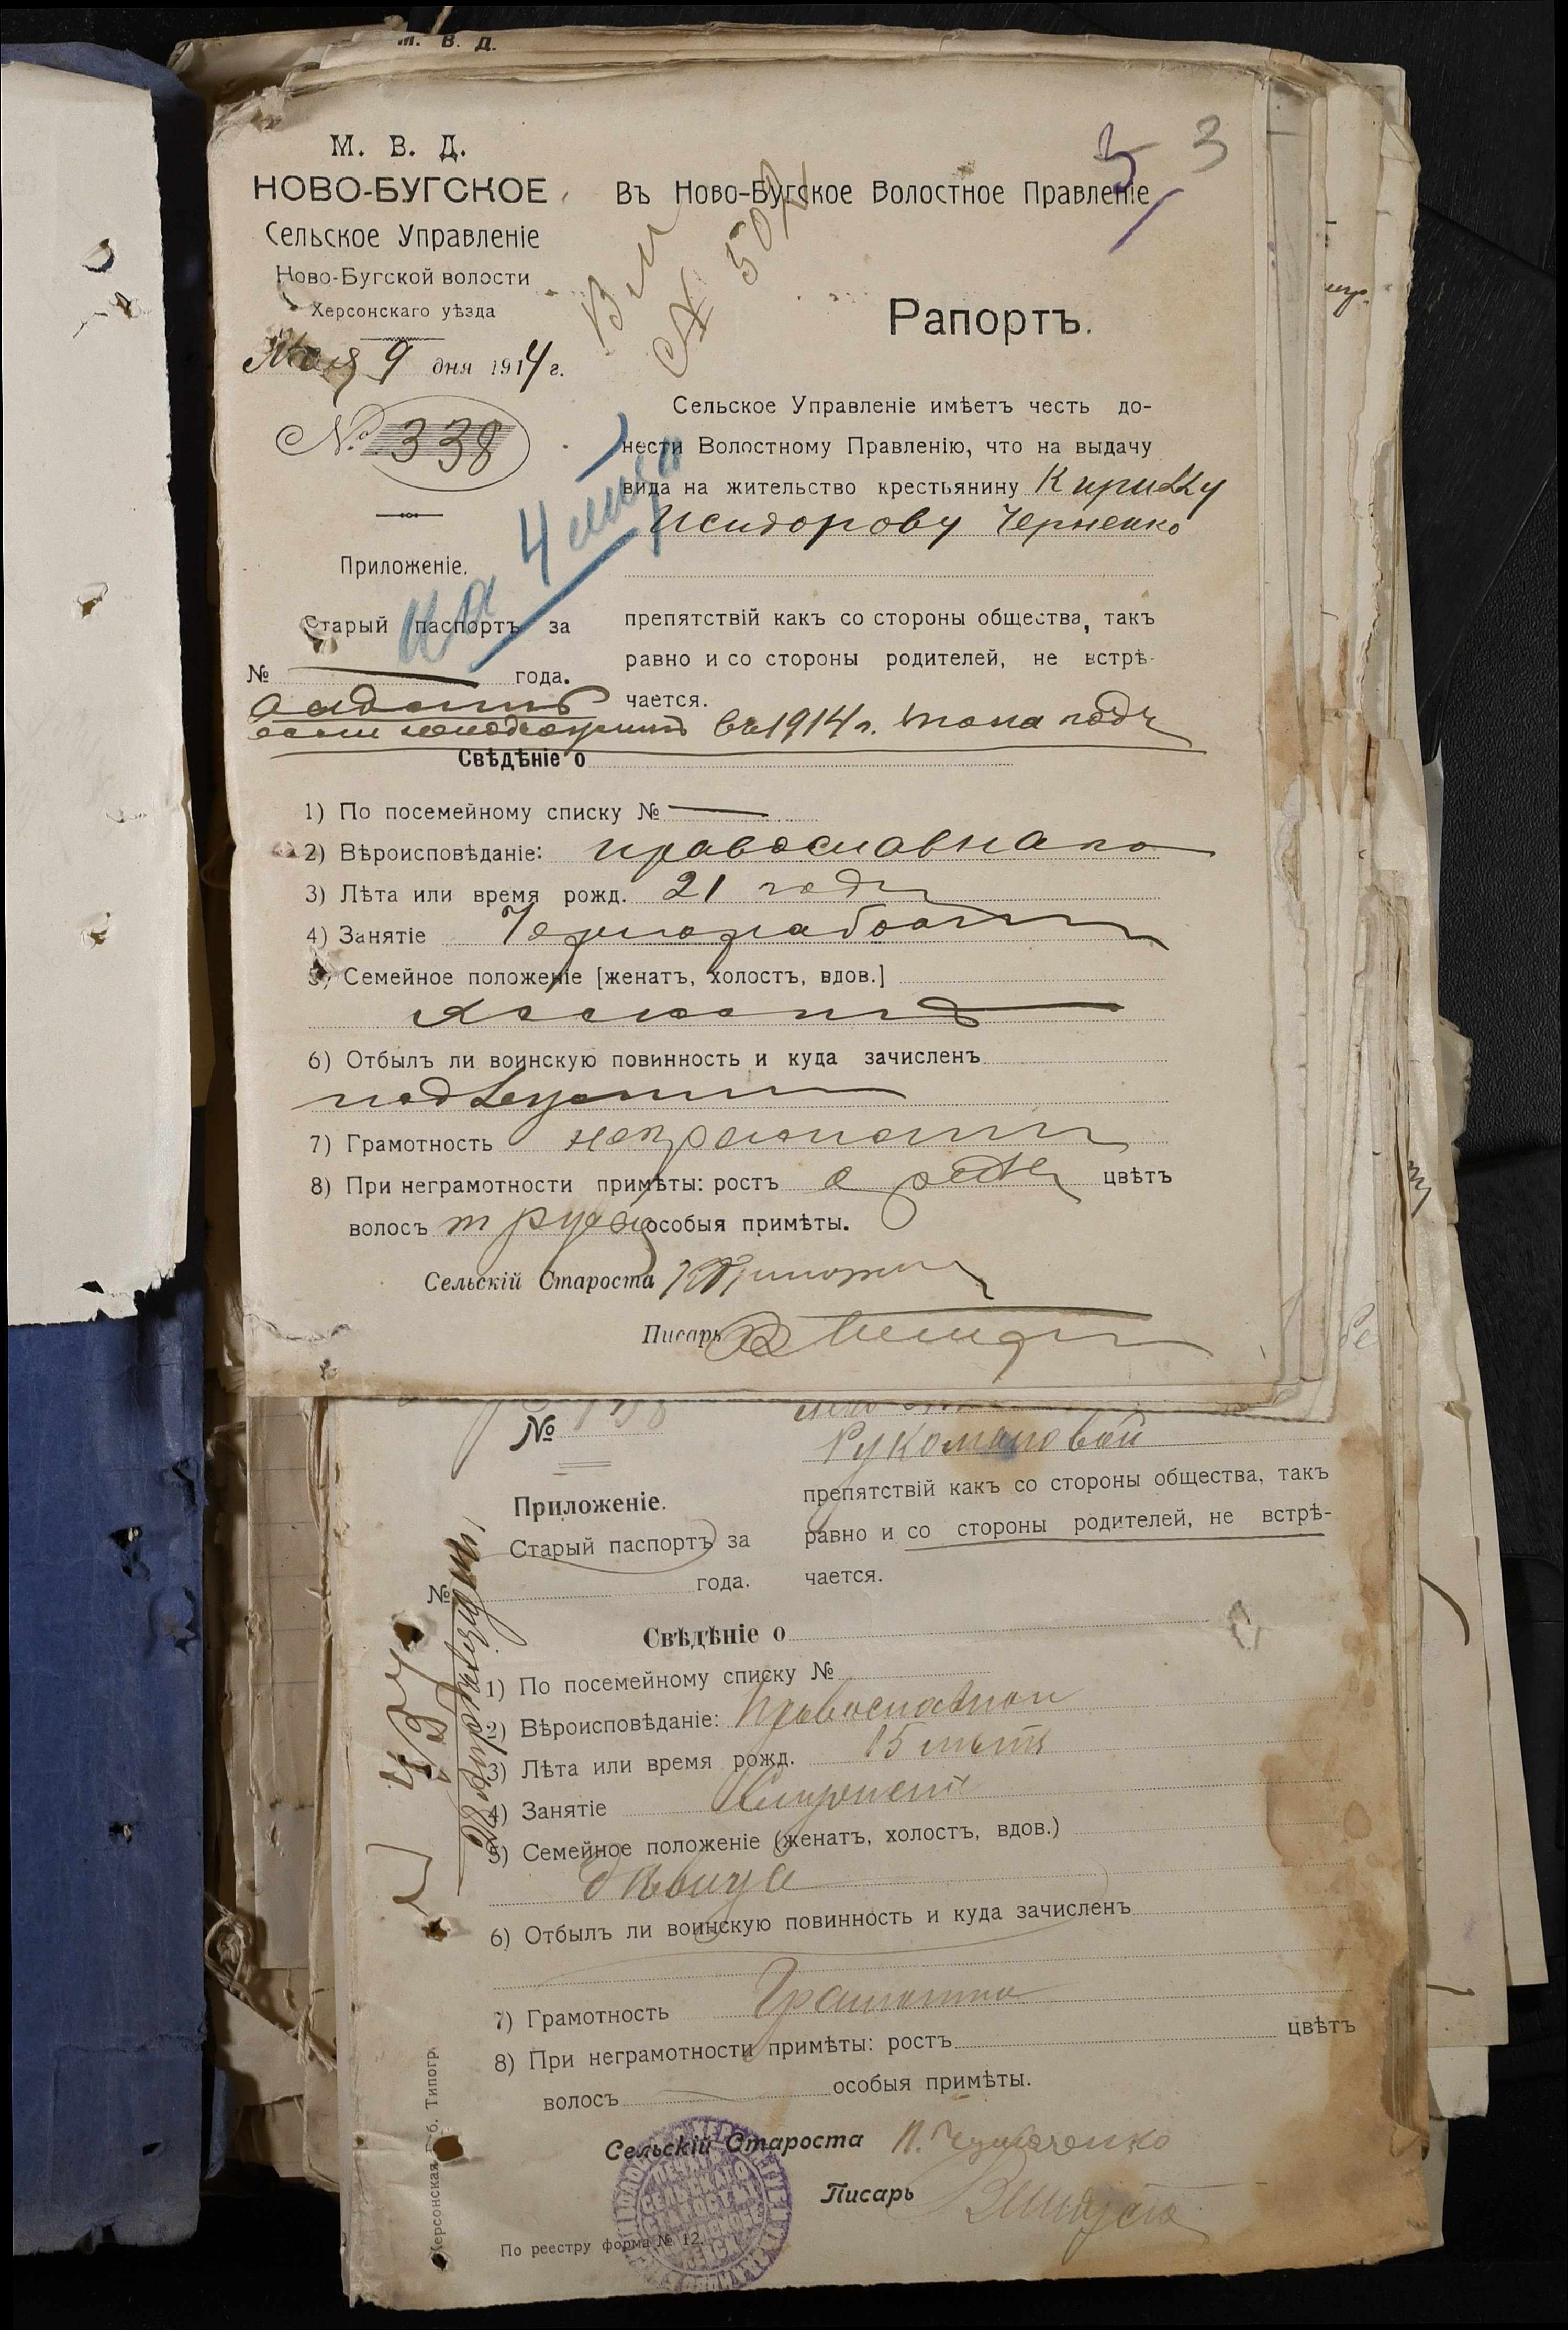 М. В. Д.
М. В. Д.
НОВО-БУГСКОЕ
Сельское Управленіе
Ново-Бугской волости
Херсонскаго уѣзда
Мая 9 дня 1914 г.
№ 338
Приложеніе.
Старый паспортъ за
№ года.
3
Въ Ново-Бугское Волостное Правленіе
Рапортъ.
Сельское Управленіе имѣетъ честь до-
нести Волостному Правленію, что на выдачу
вида на жительство крестьянину Кириллу
Исидорову Черненко
препятствій какъ со стороны общества, такъ
равно и со стороны родителей, не встрѣ-
чается.
въ 1914 г.
на 4
Свѣдѣніе о
1) По посемейному списку №
2) Вѣроисповѣданіе: православнаго
3) Лѣта или время рожд. 21 годъ
4) Занятіе Чернорабочій
5) Семейное положеніе [женатъ, холостъ, вдов.]
холостъ
6) Отбылъ ли воинскую повинность и куда зачисленъ
подлежитъ
7) Грамотность неграмотный
8) При неграмотности примѣты: ростъ средн цвѣтъ
волосъ т русы особыя примѣты.
Сельскій Староста
Писарь
№
Рукомановой
Приложеніе.
Старый паспортъ за
№ года.
препятствій какъ со стороны общества, такъ
равно и со стороны родителей, не встрѣ-
чается.
Свѣдѣніе о
1) По посемейному списку №
2) Вѣроисповѣданіе: Православной
3) Лѣта или время рожд. 15 лѣтъ
4) Занятіе
5) Семейное положеніе (женатъ, холостъ, вдов.)
дѣвица
6) Отбылъ ли воинскую повинность и куда зачисленъ
7) Грамотность Грамотна
8) При неграмотности примѣты: ростъ цвѣтъ
волосъ особыя примѣты.
Сельскій Староста
Писарь
По реестру форма № 12.
Херсонская Губ. Типогр.